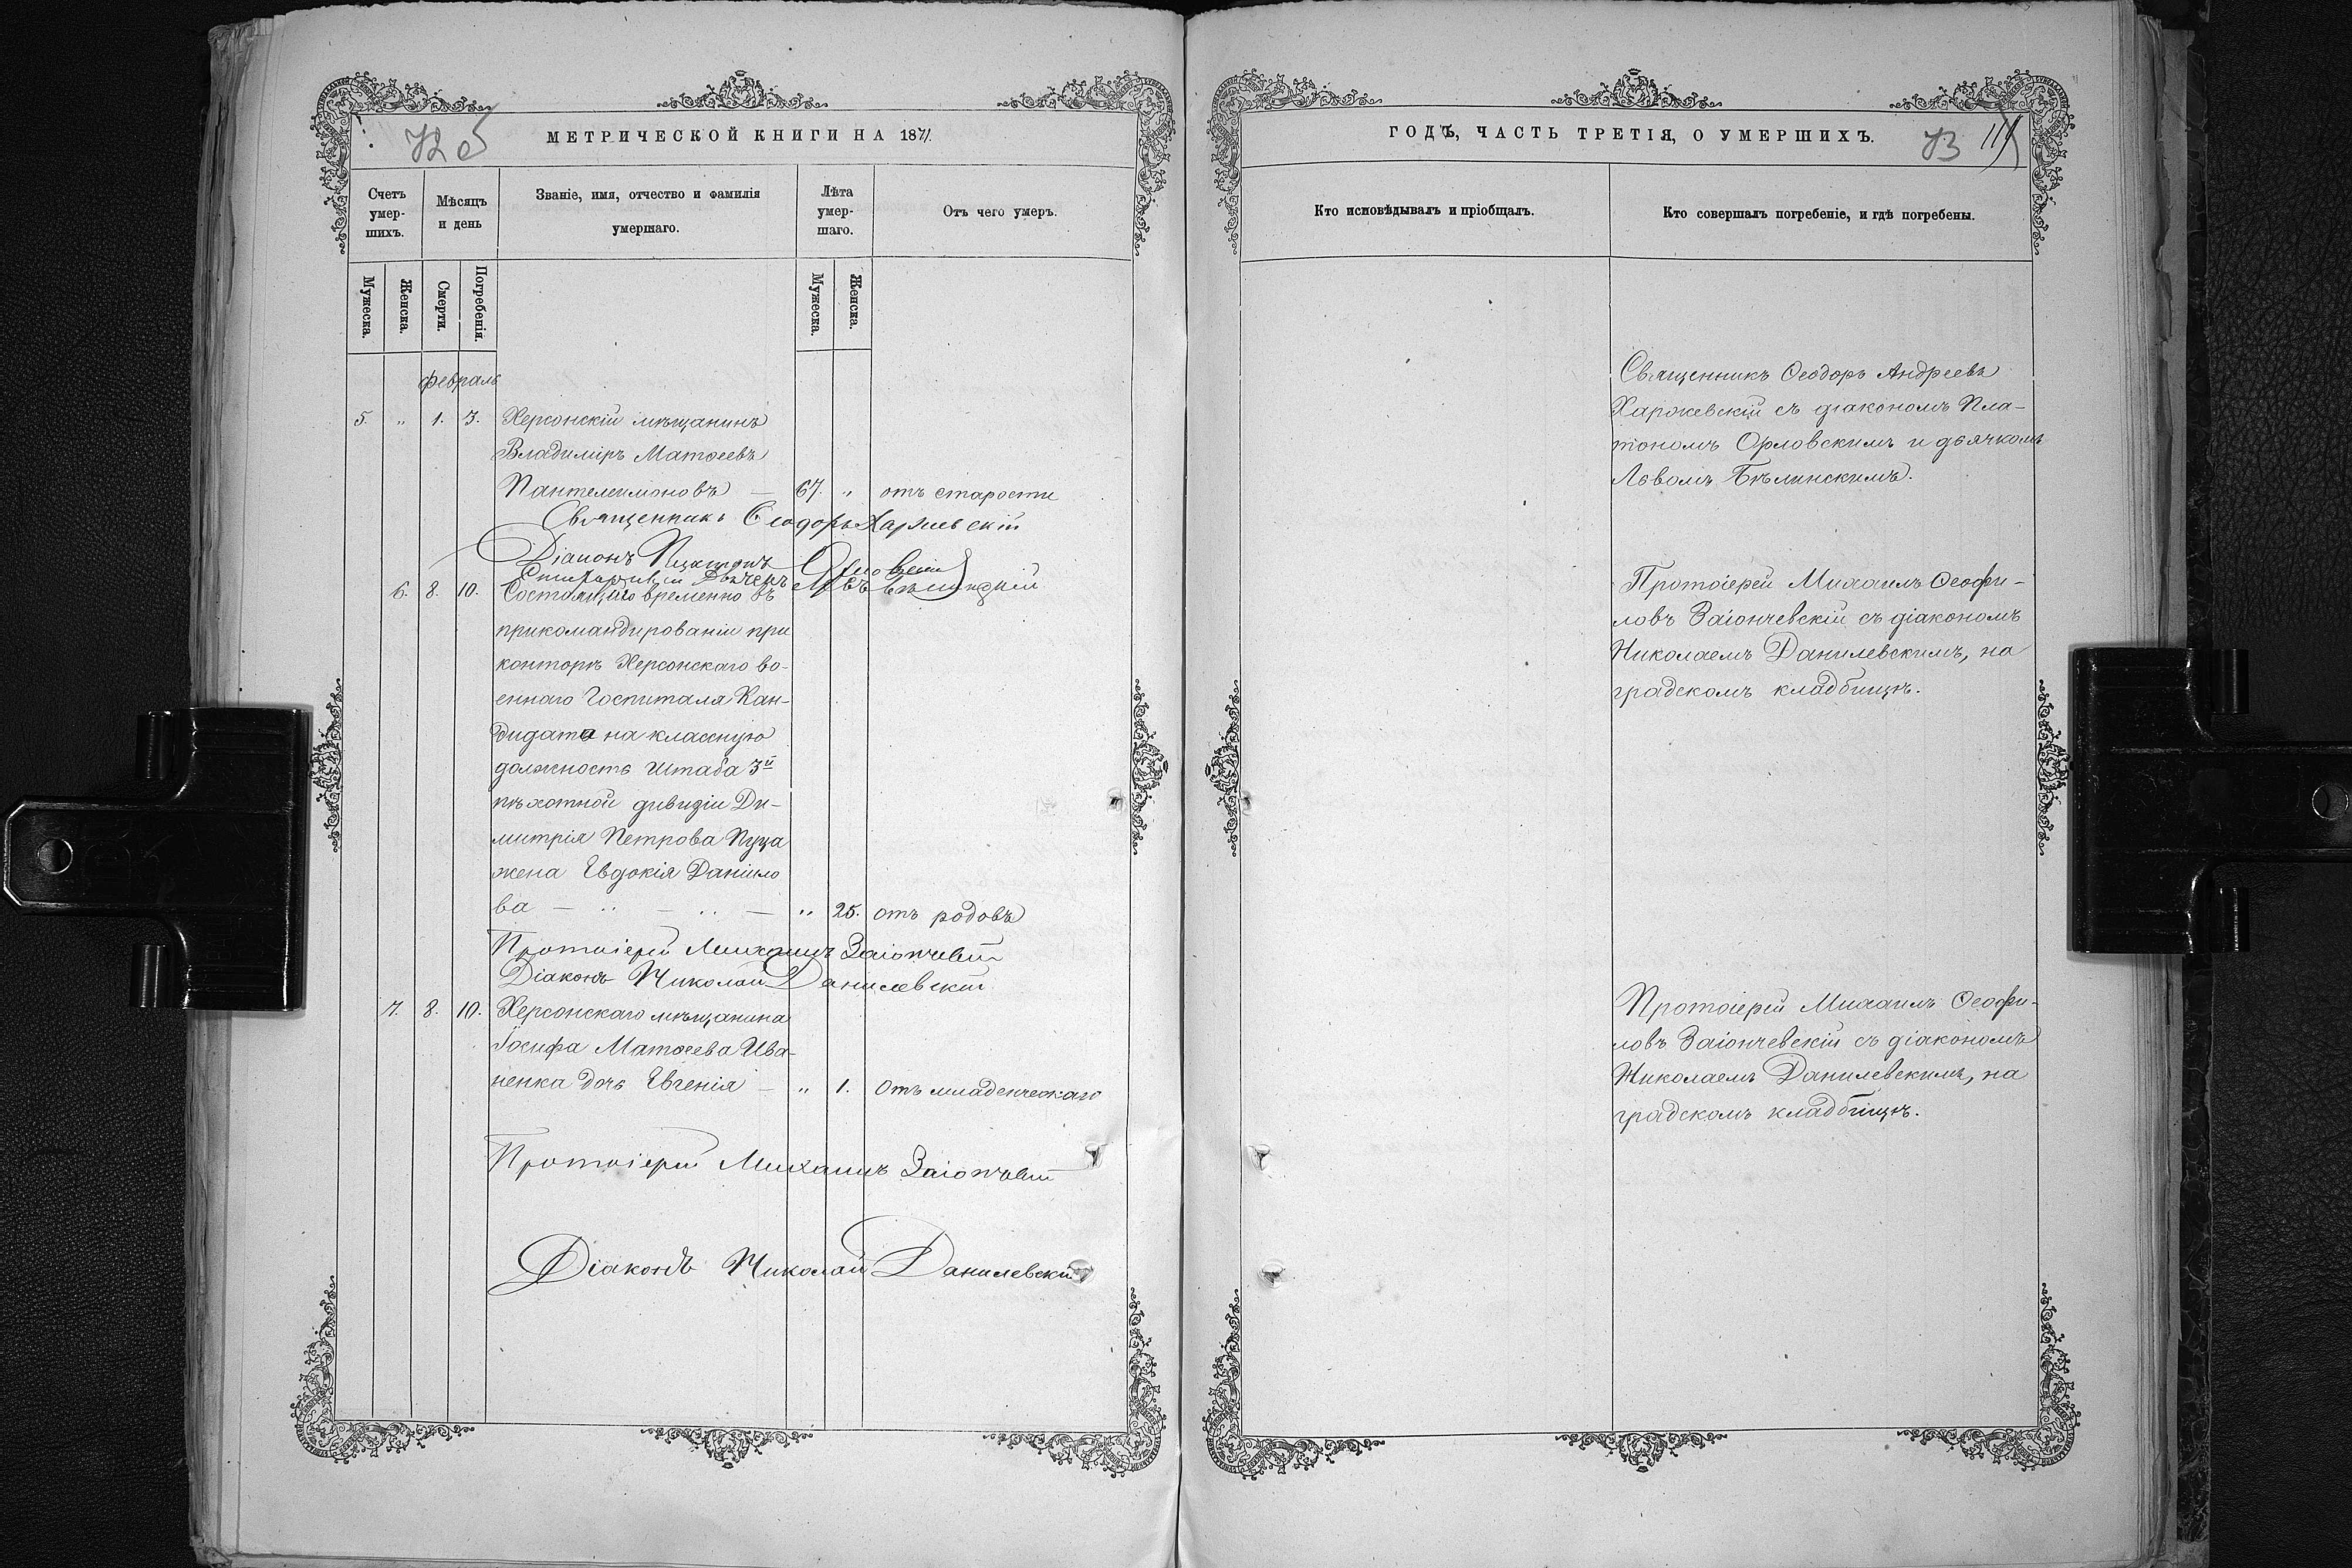 72 об
МЕТРИЧЕСКОЙ КНИГИ НА 1871.
Счетъ умер-шихъ.
Мѣсяцъ и день
Званіе, имя, отчество и фамилія умершаго.
Лѣта умер-шаго.
Отъ чего умеръ.
Мужеска.
Женска.
Смерти.
Погребенія.
Мужеска.
Женска.
февраль
5. " 1. 3. Херсонскій мѣщанинъ
Владиміръ Матѳеевъ
Пантелеимоновъ — 67. " отъ старости
Священникъ Ѳеодоръ Харжевскій
Діаконъ Платонъ Орловскій
Стихарный Дьячекъ Левъ Бѣлинскій
6. 8. 10. Состоящаго временно въ
прикомандированіи при
конторѣ Херсонскаго во-
еннаго Госпиталя Кан-
дидата на классную
должность Штаба 3й
пѣхотной дивизіи Ди-
митрія Петрова Пуца
жена Евдокія Данило
ва — " — " — " 25. отъ родовъ
Протоіерей Михаилъ Заіончевскій
Діаконъ Николай Данилевскій
7. 8. 10. Херсонскаго мѣщанина
Іосифа Матѳеева Ива-
ненка дочь Евгенія — " 1. отъ младенческаго
Протоіерей Михаилъ Заіончевскій
Діаконъ Николай Данилевскій
ГОДЪ, ЧАСТЬ ТРЕТІЯ, О УМЕРШИХЪ.
73
Кто исповѣдывалъ и пріобщалъ.
Кто совершалъ погребеніе, и гдѣ погребены.
Священникъ Ѳеодоръ Андреевъ
Харжевскій съ діакономъ Пла-
тономъ Орловскимъ и дьячкомъ
Львомъ Бѣлинскимъ.
Протоіерей Михаилъ Ѳеофи-
ловъ Заіончевскій съ діакономъ
Николаемъ Данилевскимъ, на
градскомъ кладбищѣ.
Протоіерей Михаилъ Ѳеофи-
ловъ Заіончевскій съ діакономъ
Николаемъ Данилевскимъ, на
градскомъ кладбищѣ.